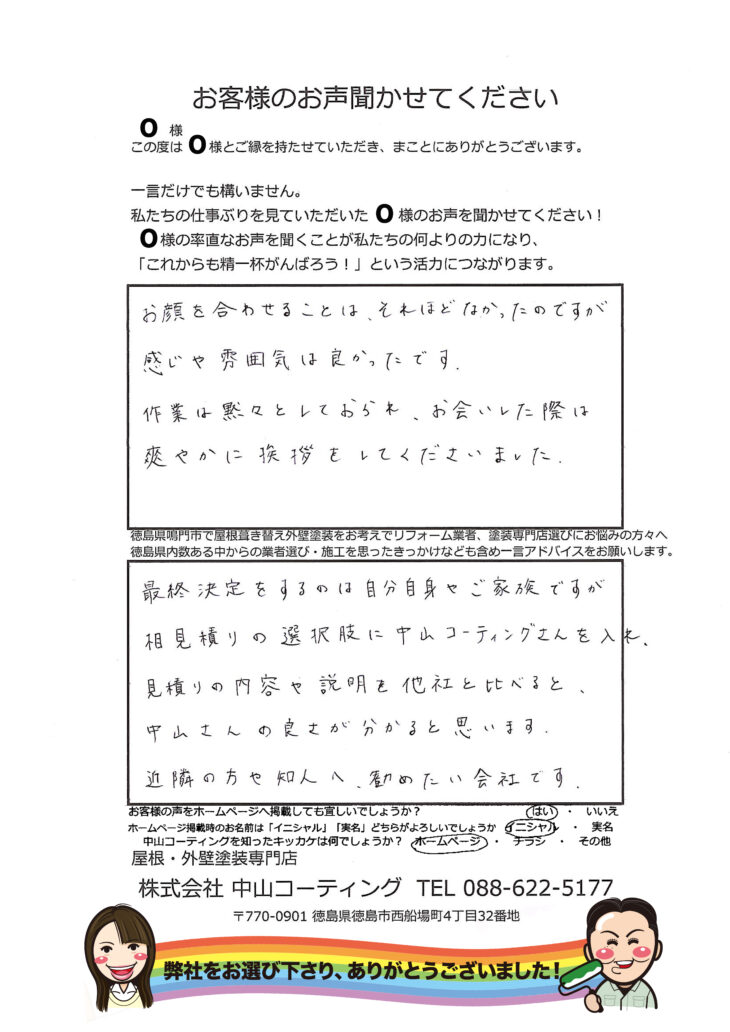 お客様のお声聞かせてください
O 様
この度は O 様とご縁を持たせていただき、まことにありがとうございます。
一言だけでも構いません。
私たちの仕事ぶりを見ていただいた O 様のお声を聞かせてください！
O様の率直なお声を聞くことが私たちの何よりの力になり、
「これからも精一杯がんばろう！」という活力につながります。
お顔を合わせることは、それほどなかったのですが
感じや雰囲気は良かったです.
作業は黙々としておられ、お会いした際は
爽やかに挨拶をしてくださいました.
徳島県鳴門市で屋根葺き替え外壁塗装をお考えでリフォーム業者、塗装専門店選びにお悩みの方々へ
徳島県内数ある中からの業者選び・施工を思ったきっかけなども含め一言アドバイスをお願いします。
最終決定をするのは自分自身やご家族ですが
相見積りの選択肢に中山コーティングさんを入れ、
見積りの内容や説明を他社と比べると、
中山さんの良さが分かると思います.
近隣の方や知人へ、勧めたい会社です.
お客様の声をホームページへ掲載しても宜しいでしょうか？ はい ・ いいえ
ホームページ掲載時のお名前は「イニシャル」「実名」どちらがよろしいでしょうか イニシャル ・ 実名
中山コーティングを知ったキッカケは何でしょうか？ ホームページ ・ チラシ ・ その他
屋根・外壁塗装専門店
株式会社 中山コーティング TEL 088-622-5177
〒770-0901 徳島県徳島市西船場町4丁目32番地
弊社をお選び下さり、ありがとうございました！